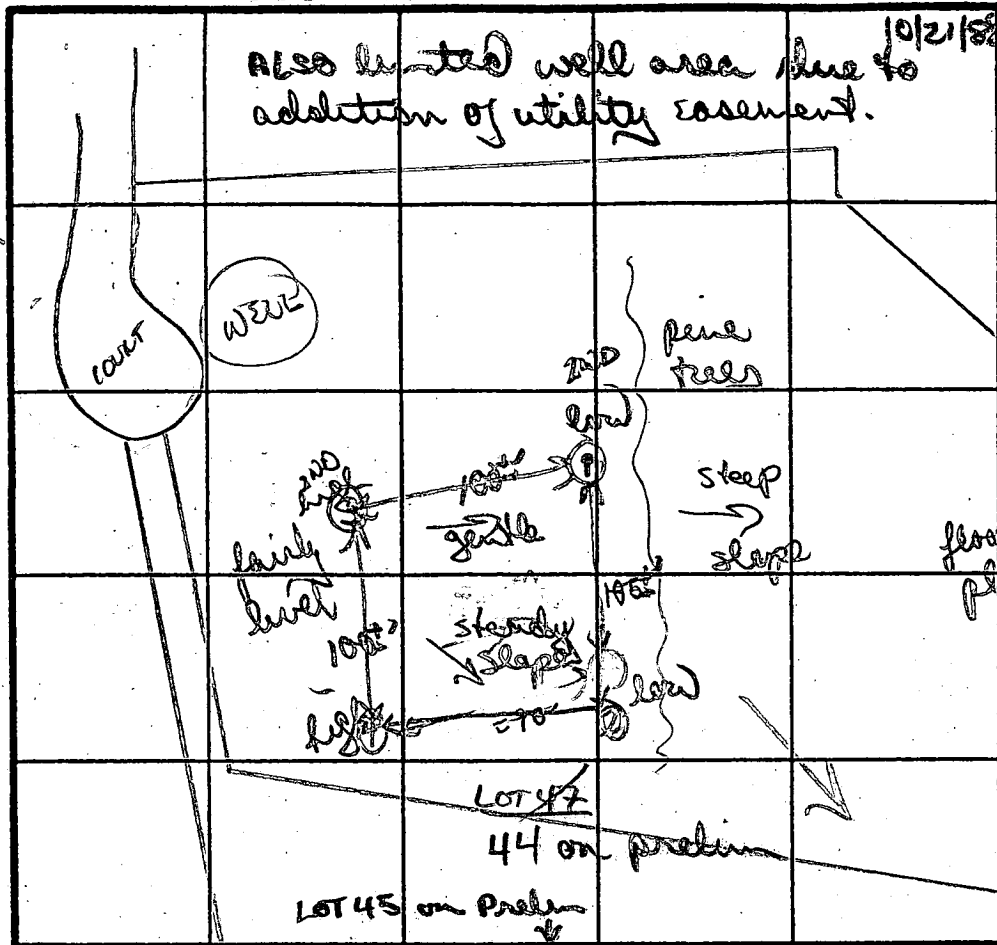 10/21/88
Also limited well area due to
addition of utility easement.
COURT
WELL
pine
trees
2ND
low
2ND
high
100'
gentle
steep
slope
fairly
level
100'
105'
steady
slope
low
high
≈90'
LOT 47
44 on prelim
LOT 45 on Prelim